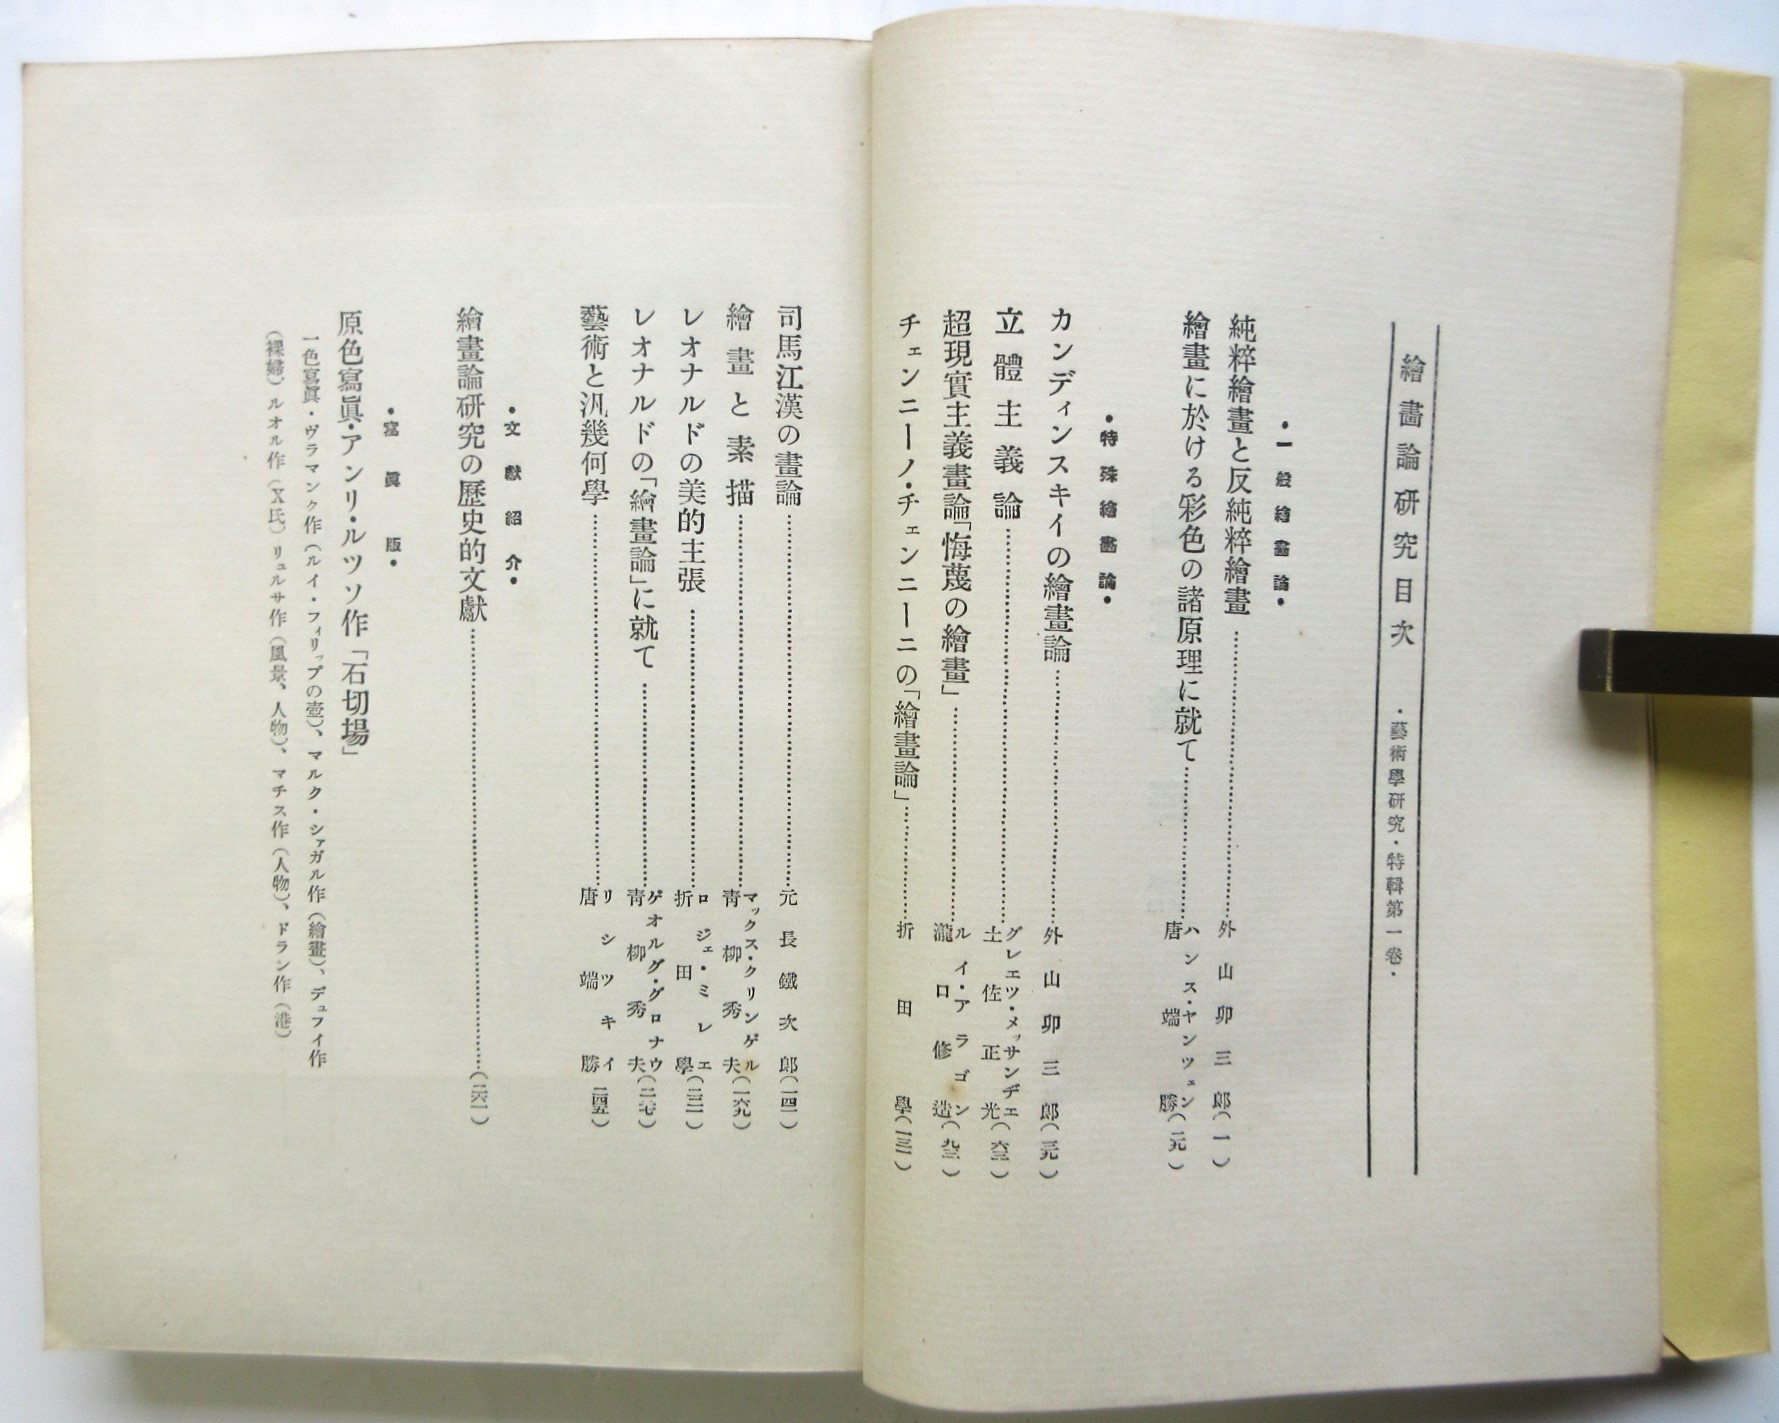 繪畫論研究目次 ・藝術學研究・特輯第一卷・
・一般繪畫論・
純粹繪畫と反純粹繪畫……外山卯三郎(一)
繪畫に於ける彩色の諸原理に就て……ハンス・ヤンツェン 唐端勝(二九)
・特殊繪畫論・
カンディンスキイの繪畫論……外山卯三郎(三九)
立體主義論……グレエツ・メッサンヂェ 土佐正光(六三)
超現實主義畫論「悔蔑の繪畫」……ルイ・アラゴン 瀧口修造(九三)
チェンニーノ・チェンニーニの「繪畫論」……折田學(一三一)
司馬江漢の畫論……元長鐵次郎(一四一)
繪畫と素描……マックス・クリンゲル 靑柳秀夫(一六九)
レオナルドの美的主張……ロジェ・ミレエ 折田學(二三一)
レオナルドの「繪畫論」に就て……ゲオルグ・グロナウ 靑柳秀夫(二三七)
藝術と汎幾何學……リシツキイ 唐端勝(二四五)
・文獻紹介・
繪畫論硏究の歷史的文獻……(二六一)
・寫眞版・
原色寫眞・アンリ・ルツソ作「石切場」
一色寫眞・ヴラマンク作(ルイ・フィリップの壺)、マルク・シァガル作(繪畫)、デュフイ作
(裸婦)ルオル作(X氏)リュルサ作(風景、人物)、マチス作(人物)、ドラン作(港)